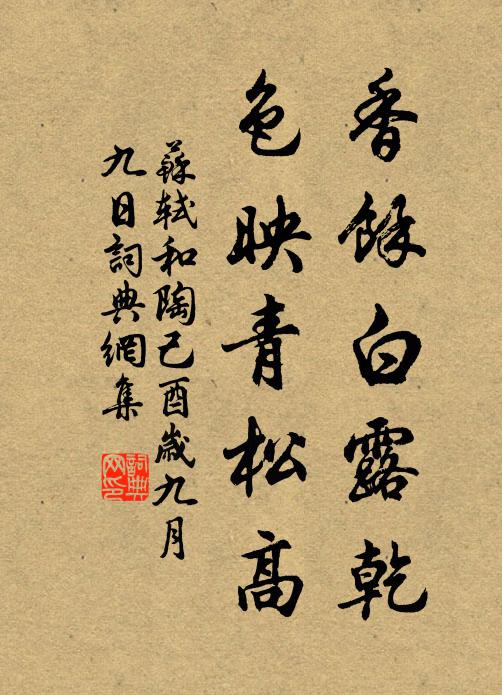 香餘白露乾
色映青松高
蘇軾和陶己酉歲九月
九日詞典網集
詞典
网印